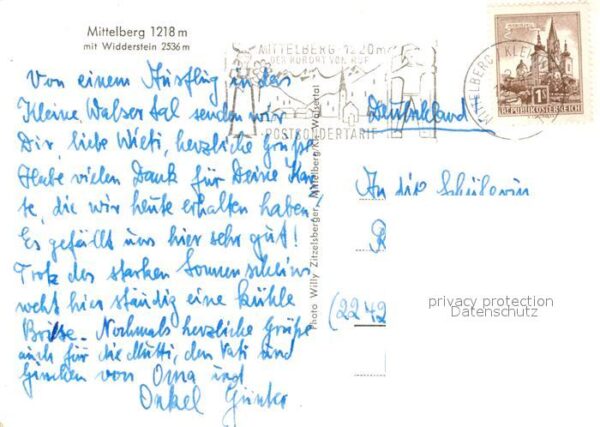 Mittelberg 1218 m
mit Widderstein 2536 m
MITTELBERG · 1220 m
DER KURORT VON RUF
POSTSONDERTARIF
REPUBLIK ÖSTERREICH
1S
Von einem Ausflug in das
Kleine Walsertal senden wir
Dir, liebe herzliche Grüße
Habe vielen Dank für Deine Kar-
te, die wir heute erhalten haben!
Es gefällt uns hier sehr gut!
Trotz des starken Sonnenscheins
weht hier ständig eine kühle
Brise. Nochmals herzliche Grüße
auch für die Mutti, den Vati und
von Oma und
Onkel Günter
Photo Willy Zitzelsberger, Mittelberg/Kl. Walsertal
Deutschland
An die Schülerin
R
(2242
privacy protection
Datenschutz